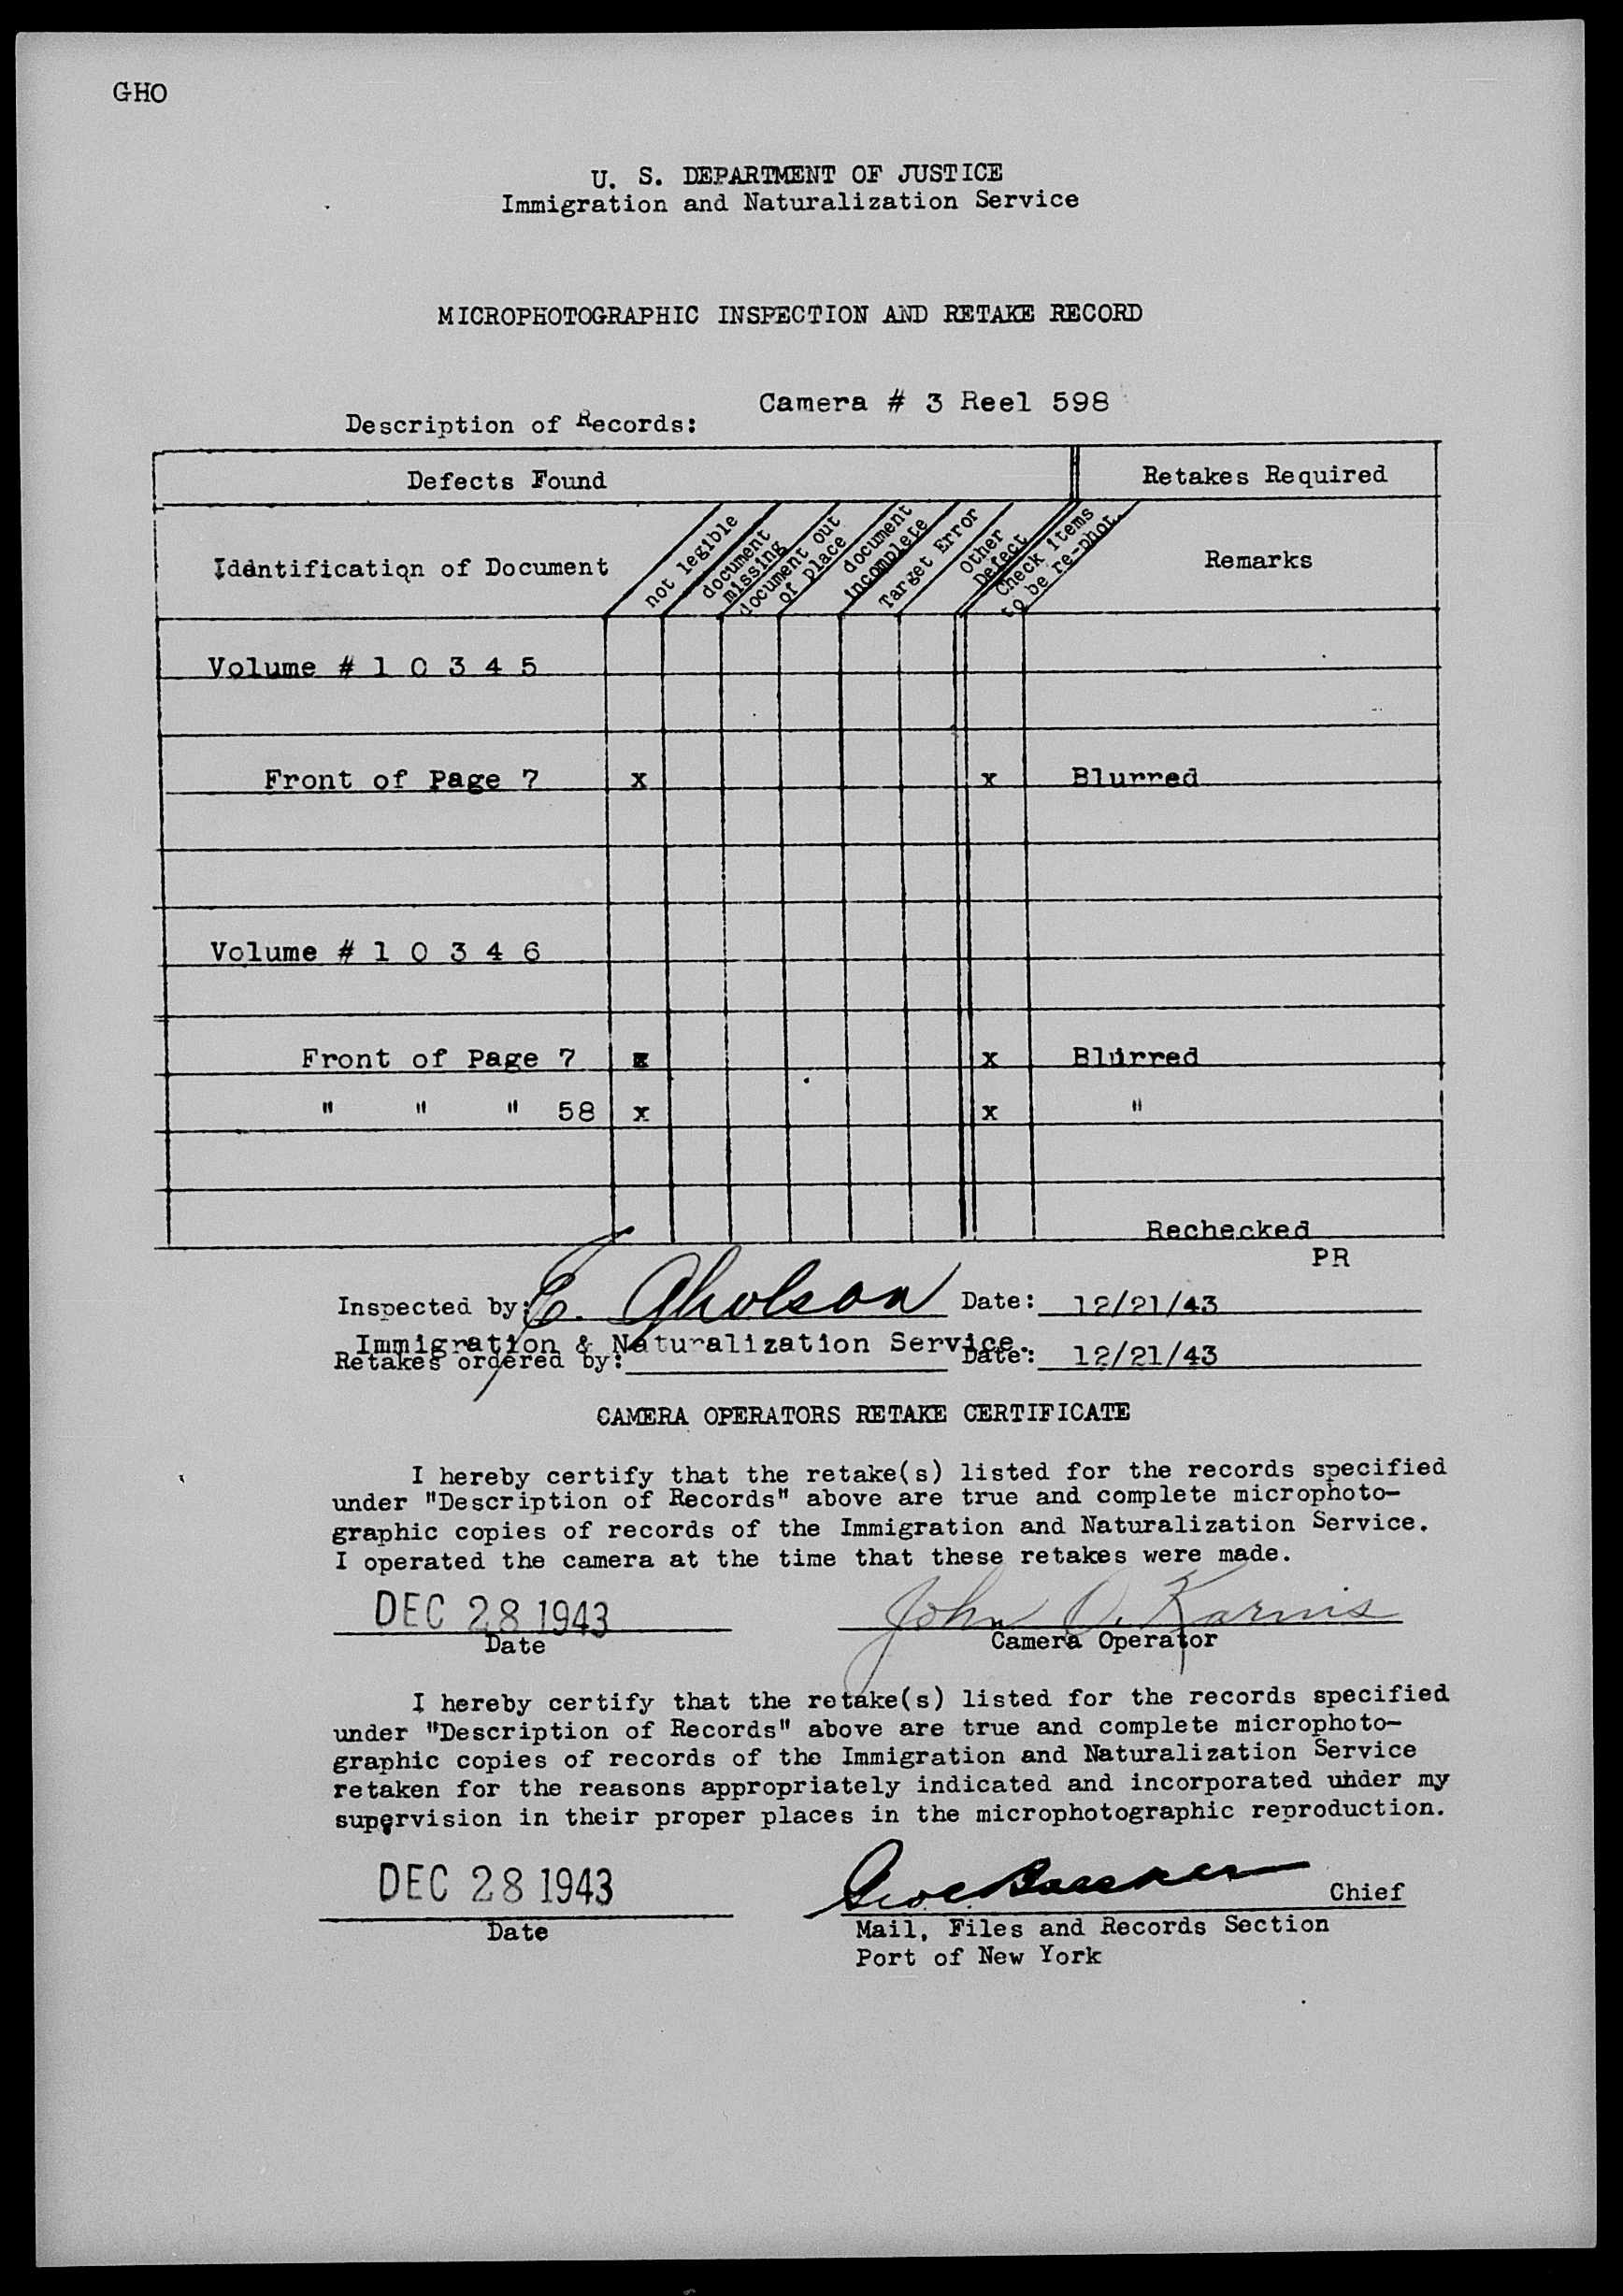 GHO
U. S. DEPARTMENT OF JUSTICE
Immigration and Naturalization Service
MICROPHOTOGRAPHIC INSPECTION AND RETAKE RECORD
Camera # 3 Reel 598
Description of Records:
Defects Found Retakes Required
Identification of Document
not legible
document missing
document out of place
document incomplete
Target Error
Other Defect
Check items to be re-phot.
Remarks
Volume # 1 0 3 4 5
Front of Page 7 x x Blurred
Volume # 1 0 3 4 6
Front of Page 7 x x Blurred
" " " 58 x x "
Rechecked
PR
Inspected by: E. Gholson Date: 12/21/43
Immigration & Naturalization Service.
Retakes ordered by: Date: 12/21/43
CAMERA OPERATORS RETAKE CERTIFICATE
I hereby certify that the retake(s) listed for the records specified
under "Description of Records" above are true and complete microphoto-
graphic copies of records of the Immigration and Naturalization Service.
I operated the camera at the time that these retakes were made.
DEC 28 1943 John
Date Camera Operator
I hereby certify that the retake(s) listed for the records specified
under "Description of Records" above are true and complete microphoto-
graphic copies of records of the Immigration and Naturalization Service
retaken for the reasons appropriately indicated and incorporated under my
supervision in their proper places in the microphotographic reproduction.
DEC 28 1943 Chief
Date Mail, Files and Records Section
Port of New York